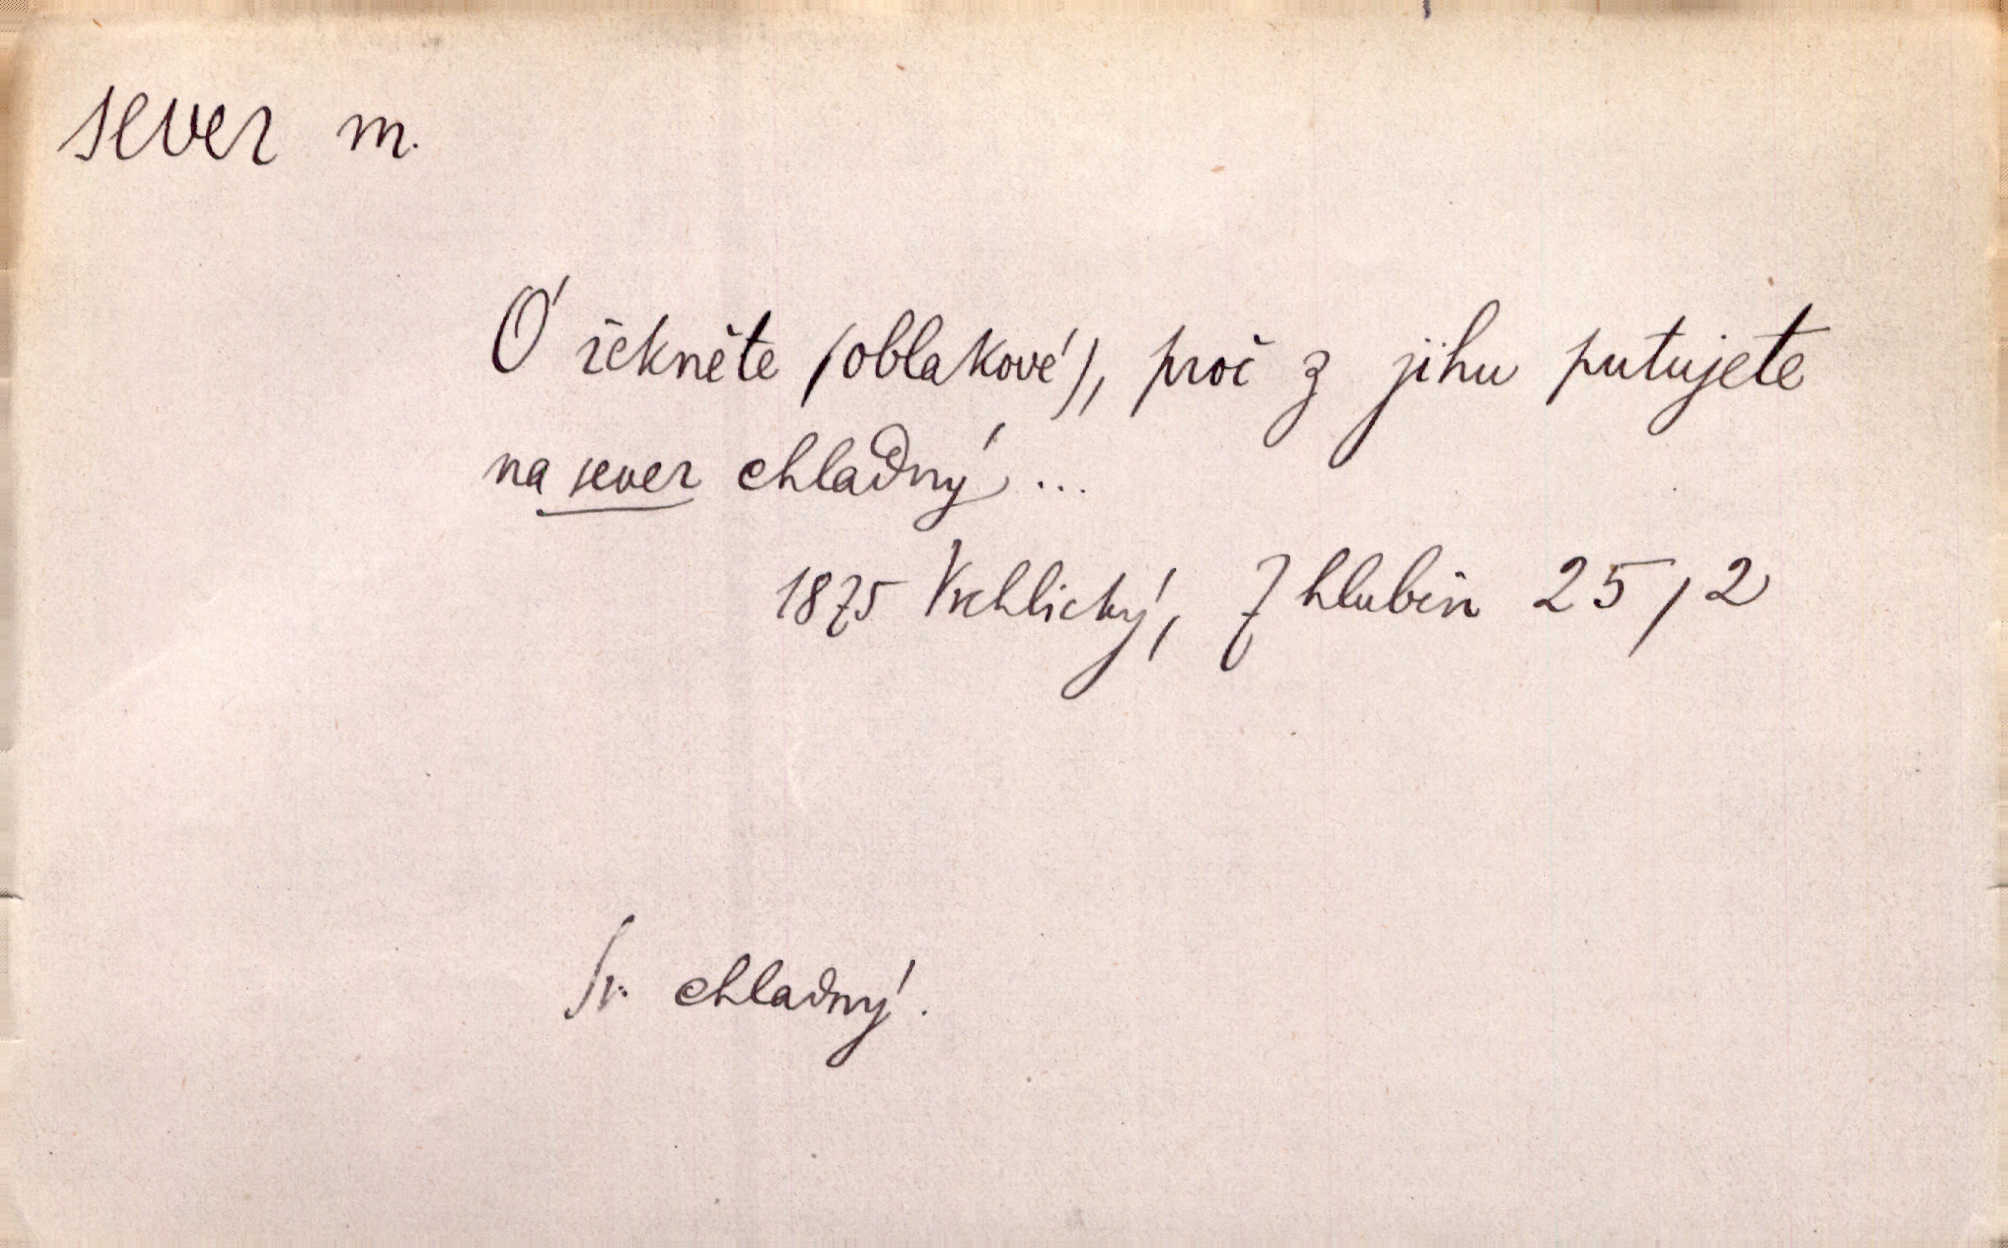 sever m.
Ó řekněte (oblakové), proč z jihu putujete
na sever chladný ...
1875 Vrchlický, Z hlubin 25, 2
Sv. chladný.